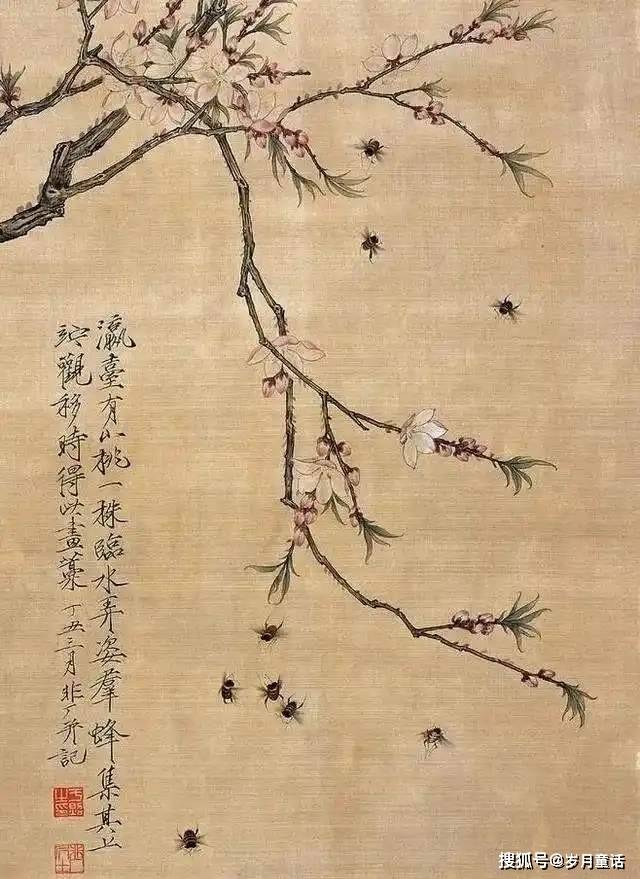 瀛臺有小桃一株臨水弄姿羣蜂集其上
竚觀移時得此畫藁丁丑三月非厂并記
搜狐号@岁月童话